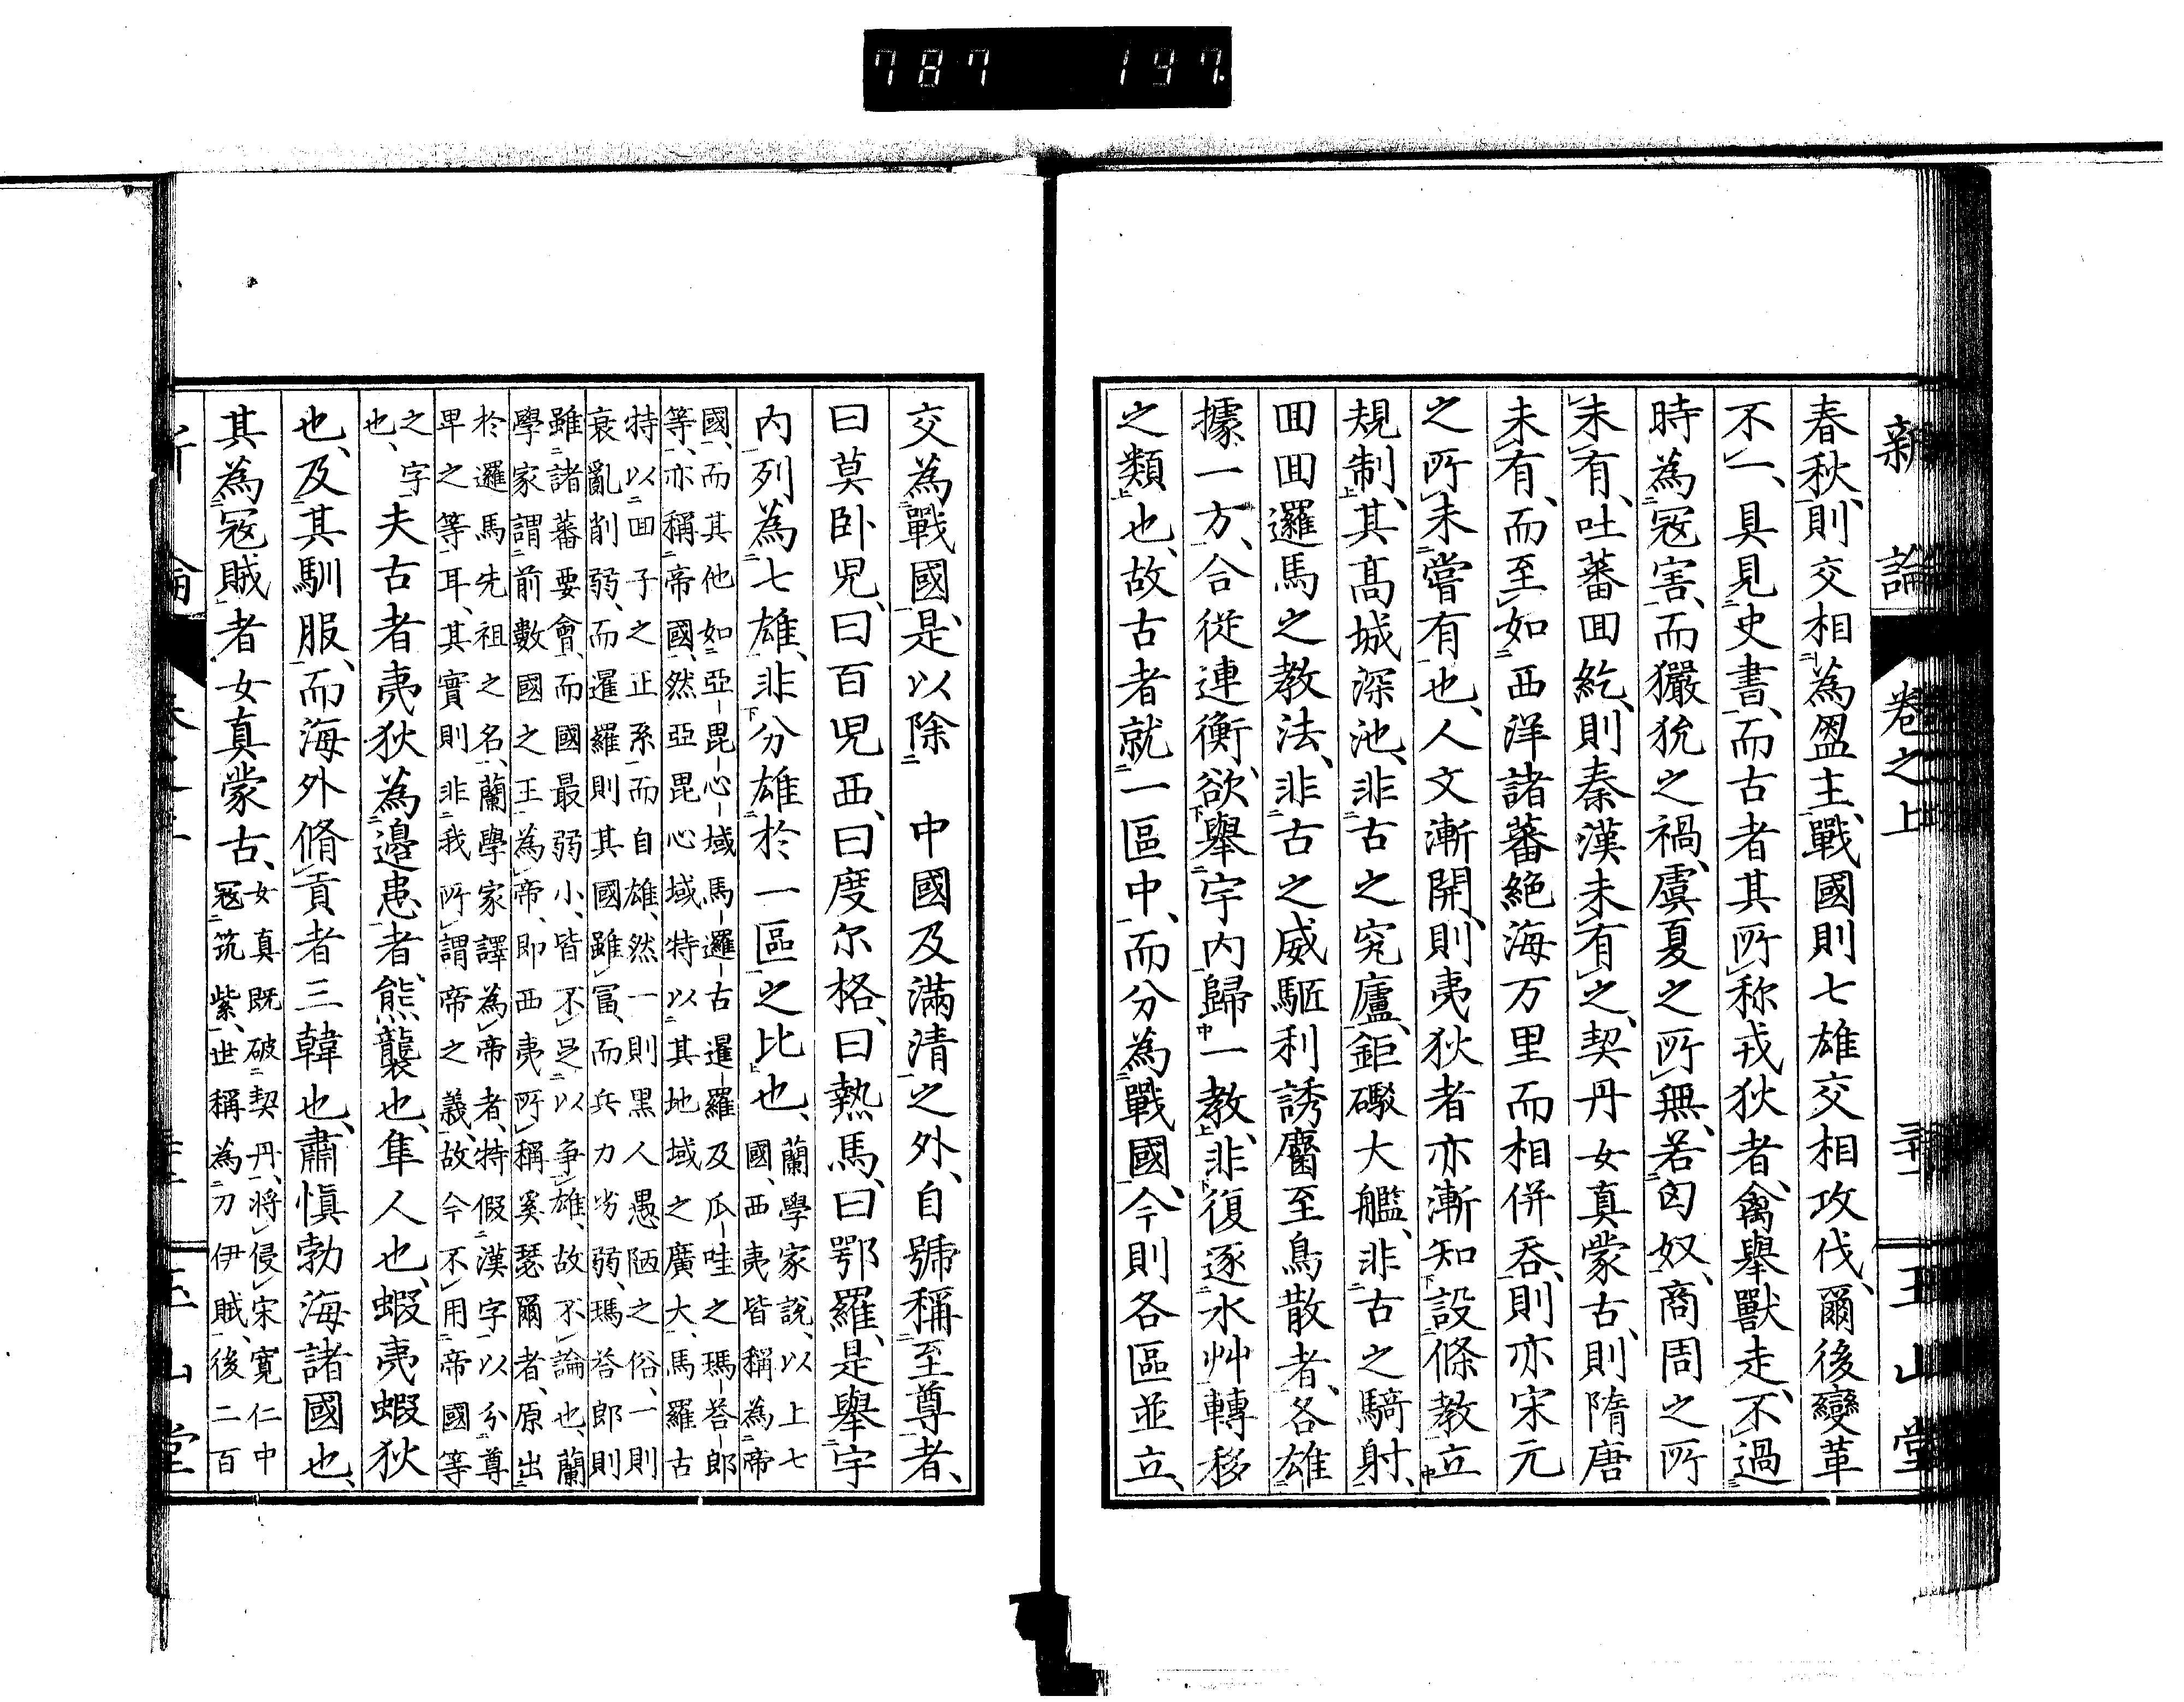 787 197.
新論 卷之上 玉山堂
春秋、則交相為盟主、戰國則七雄交相攻伐、爾後變革
不一、具見史書、而古者其所称戎狄者、禽舉獸走、不過
時為寇害、而玁狁之禍、虞夏之所無、若匈奴、商周之所
未有、吐蕃回紇、則秦漢未有之、契丹女真蒙古、則隋唐
未有、而至如西洋諸蕃絕海万里而相併吞、則亦宋元
之所未嘗有也、人文漸開、則夷狄者亦漸知設條教立
規制、其高城深池、非古之穹廬、鉅礮大艦、非古之騎射、
回回邏馬之教法、非古之威驅利誘屬至鳥散者、各雄
據一方、合從連衡、欲舉宇內歸一教、非復逐水艸轉移
之類也、故古者就一區中、而分為戰國、今則各區並立、
交為戰國、是以除 中國及滿清之外、自號稱至尊者、
曰莫卧児、曰百児西、曰度尔格、曰熱馬、曰鄂羅、是舉宇
內列為七雄、非分雄於一區之比也、蘭學家說、以上七
國、西夷皆稱為帝
國、而其他如亞毘心域馬邏古暹羅及瓜哇之瑪荅郎
等、亦稱帝國、然亞毘心域特以其地域之廣大、馬羅古
特以回子之正系而自雄、然一則黑人愚陋之俗、一則
衰亂削弱、而暹羅則其國雖冨、而兵力劣弱、瑪荅郎則
雖諸蕃要會、而國最弱小、皆不足以爭雄、故不論也、蘭
學家謂前數國之王為帝、即西夷所稱奚瑟爾者、原出
於邏馬先祖之名、蘭學家譯為帝者、特假漢字以分尊
卑之等耳、其實則非我所謂帝之義、故今不用帝國等
之字
也、夫古者夷狄為邊患者、熊襲也、隼人也、蝦夷蝦狄
也、及其馴服、而海外脩貢者三韓也、肅慎勃海諸國也、
其為寇賊者女真蒙古、女真既破契丹、将侵宋寬仁中
寇筑紫、世稱為刀伊賊、後二百